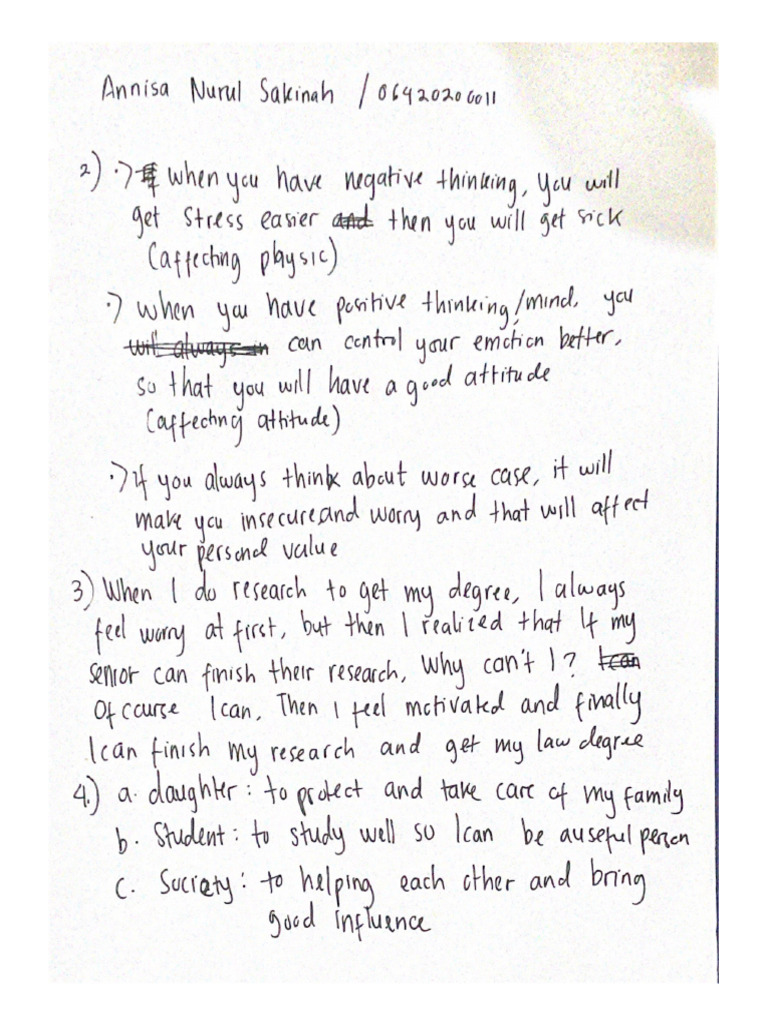 Annisa Nurul Sakinah / 06420200011
2) •) when you have negative thinking, you will
get stress easier and then you will get sick
(affecting physic)
•) when you have positive thinking/mind, you
will always in can control your emotion better,
so that you will have a good attitude
(affecting attitude)
•) if you always think about worse case, it will
make you insecure and worry and that will affect
your personal value
3) When I do research to get my degree, I always
feel worry at first, but then I realized that if my
senior can finish their research, Why can't I? I can
Of course I can, Then I feel motivated and finally
I can finish my research and get my law degree
4.) a. daughter : to protect and take care of my family
b. Student : to study well so I can be a useful person
c. Society : to helping each other and bring
good influence